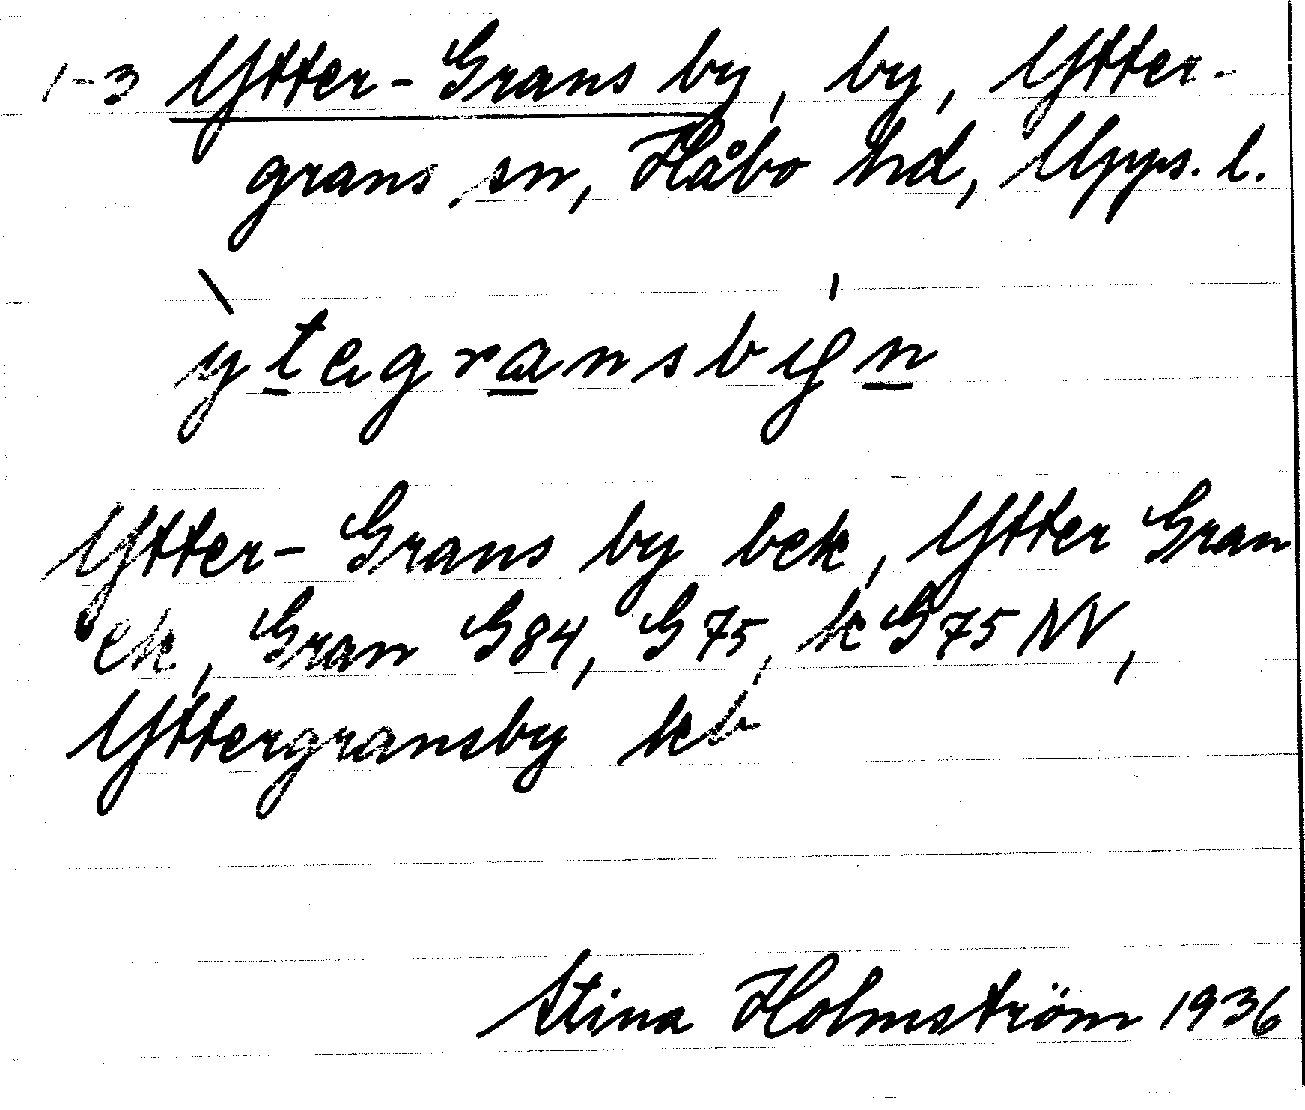 1-3 Ytter-Grans by, by, Ytter-
grans sn, Håbo hd, Upps. l.
ytegransbyn
Ytter-Grans by bek, Ytter Gran
ek, Gran G84, G75, k G75 NV,
Yttergransby kb
Stina Holmström 1936